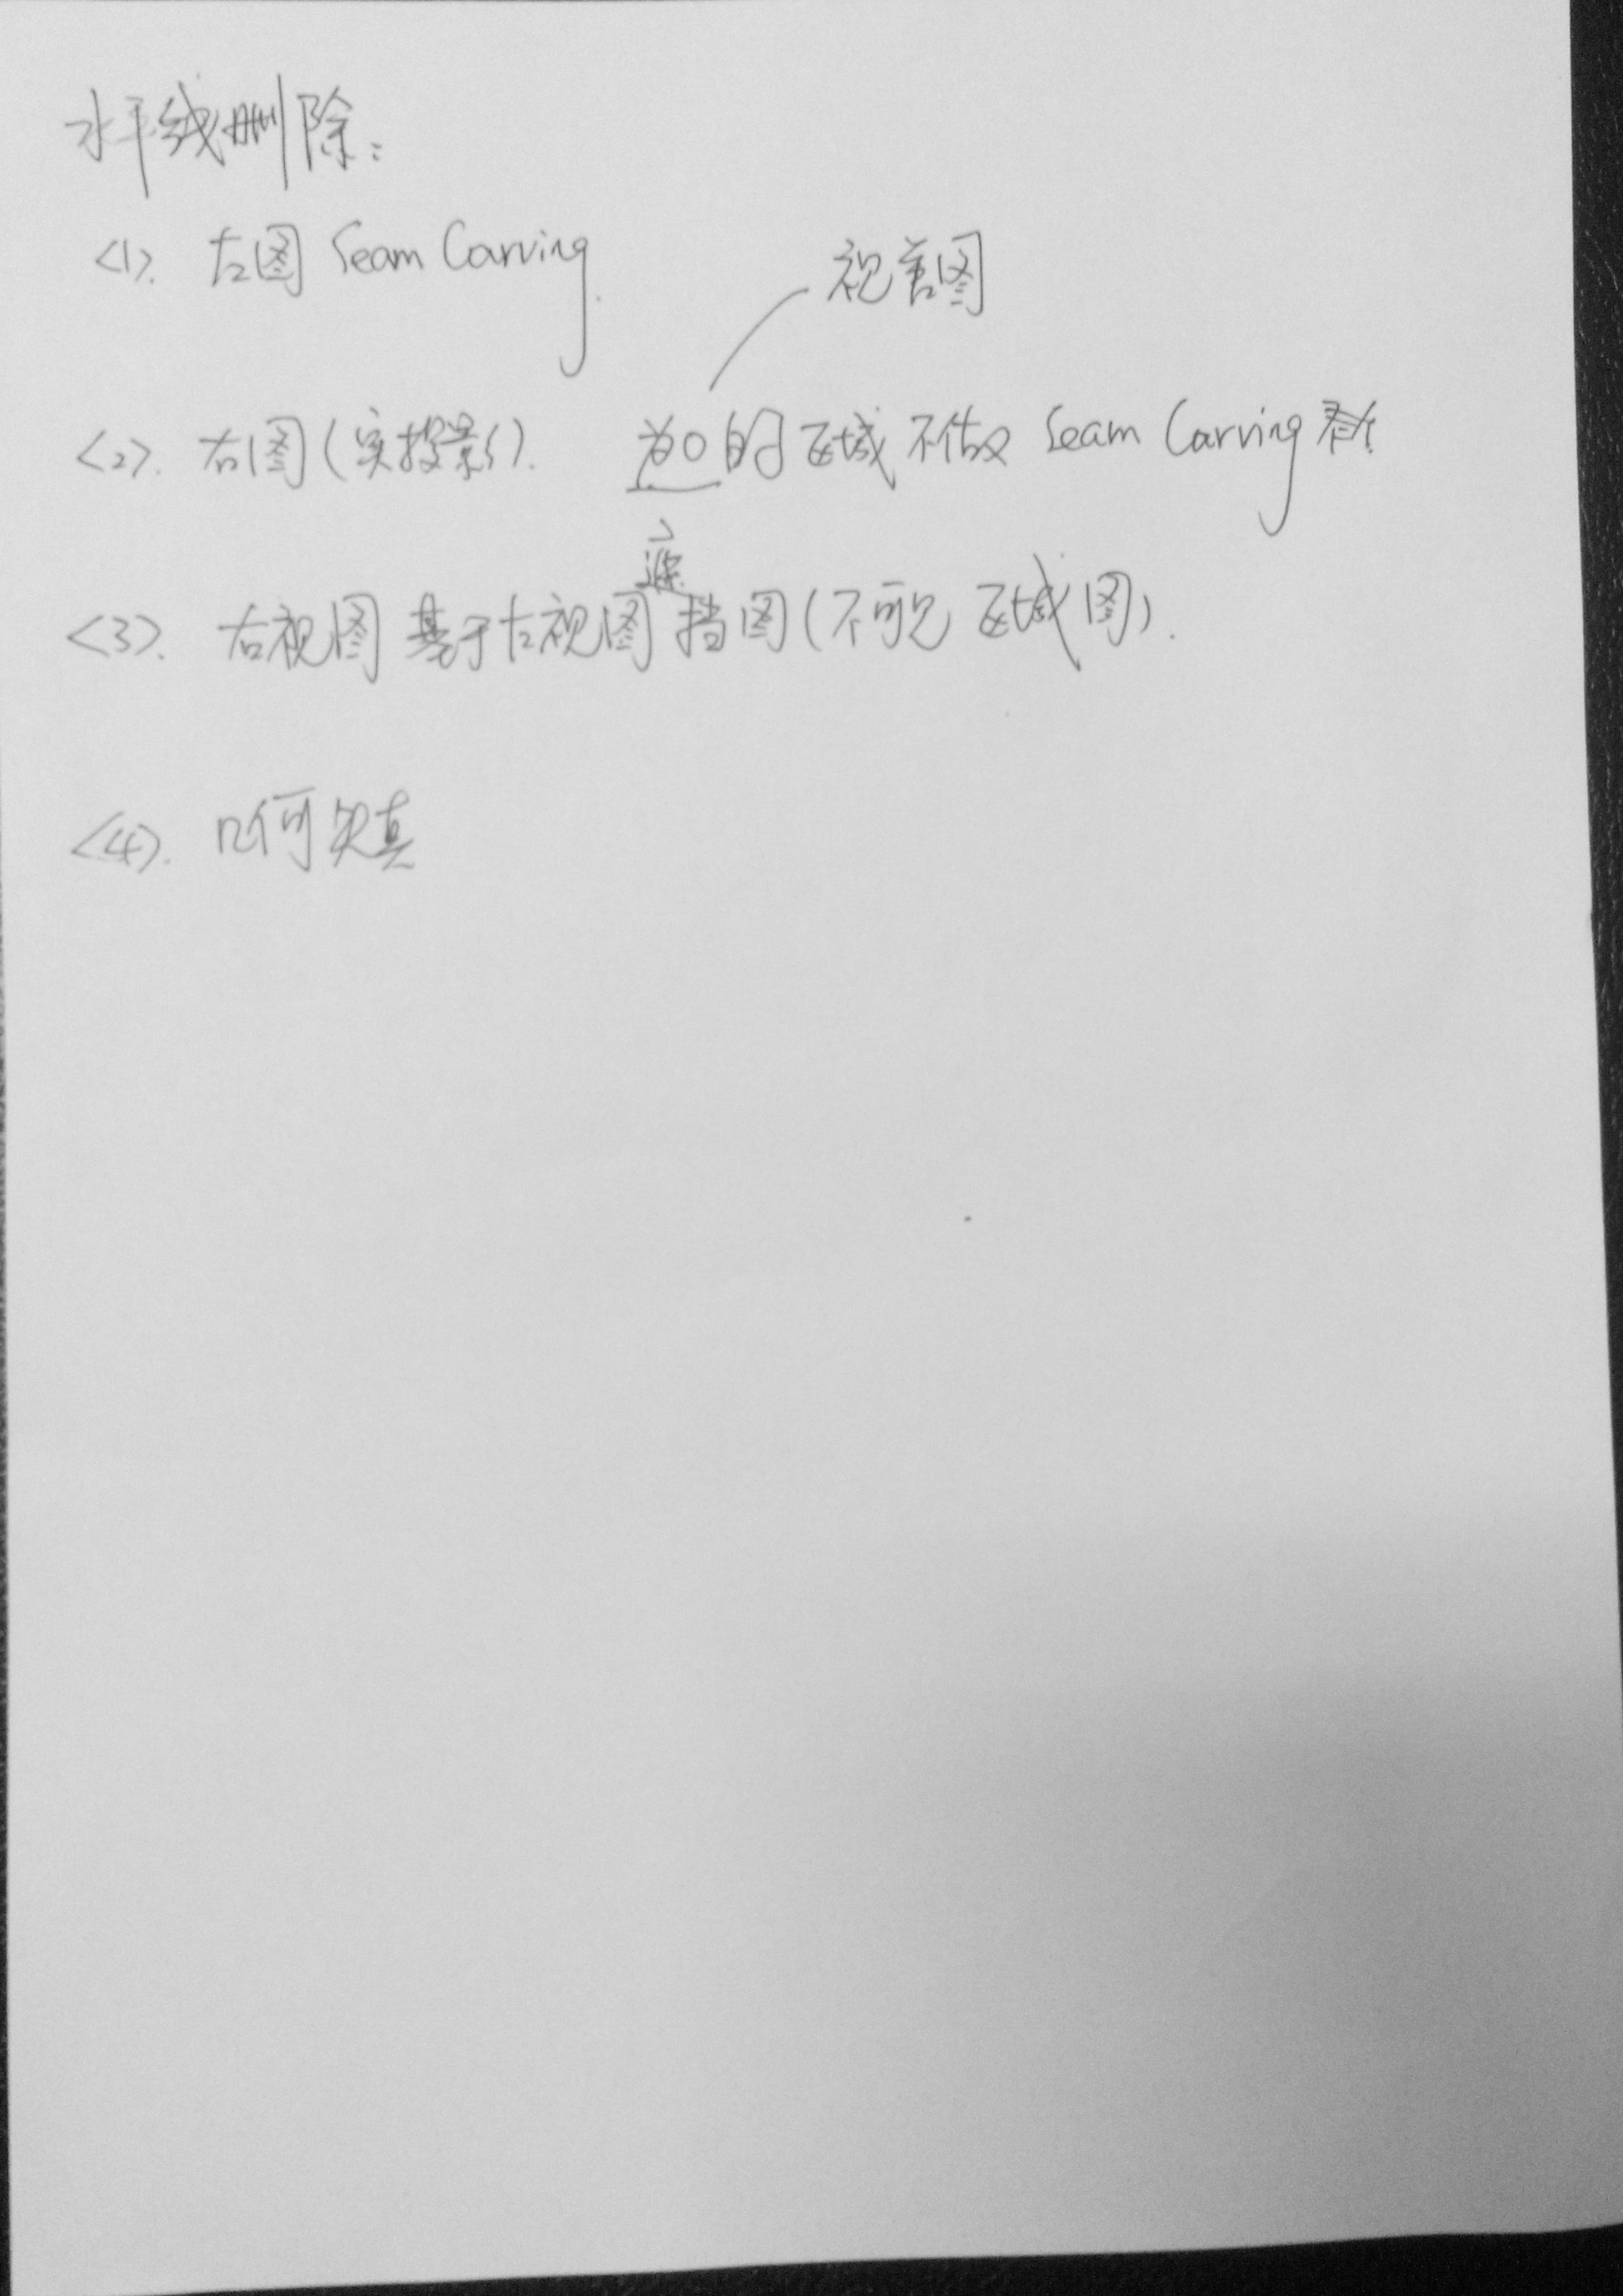 水平线删除:
<1>. 左图 Seam Carving.
视差图
<2>. 右图(实投影). 为0的区域不做 Seam Carving
<3>. 右视图基于左视图遮挡图(不可见区域图).
<4>. 几何失真